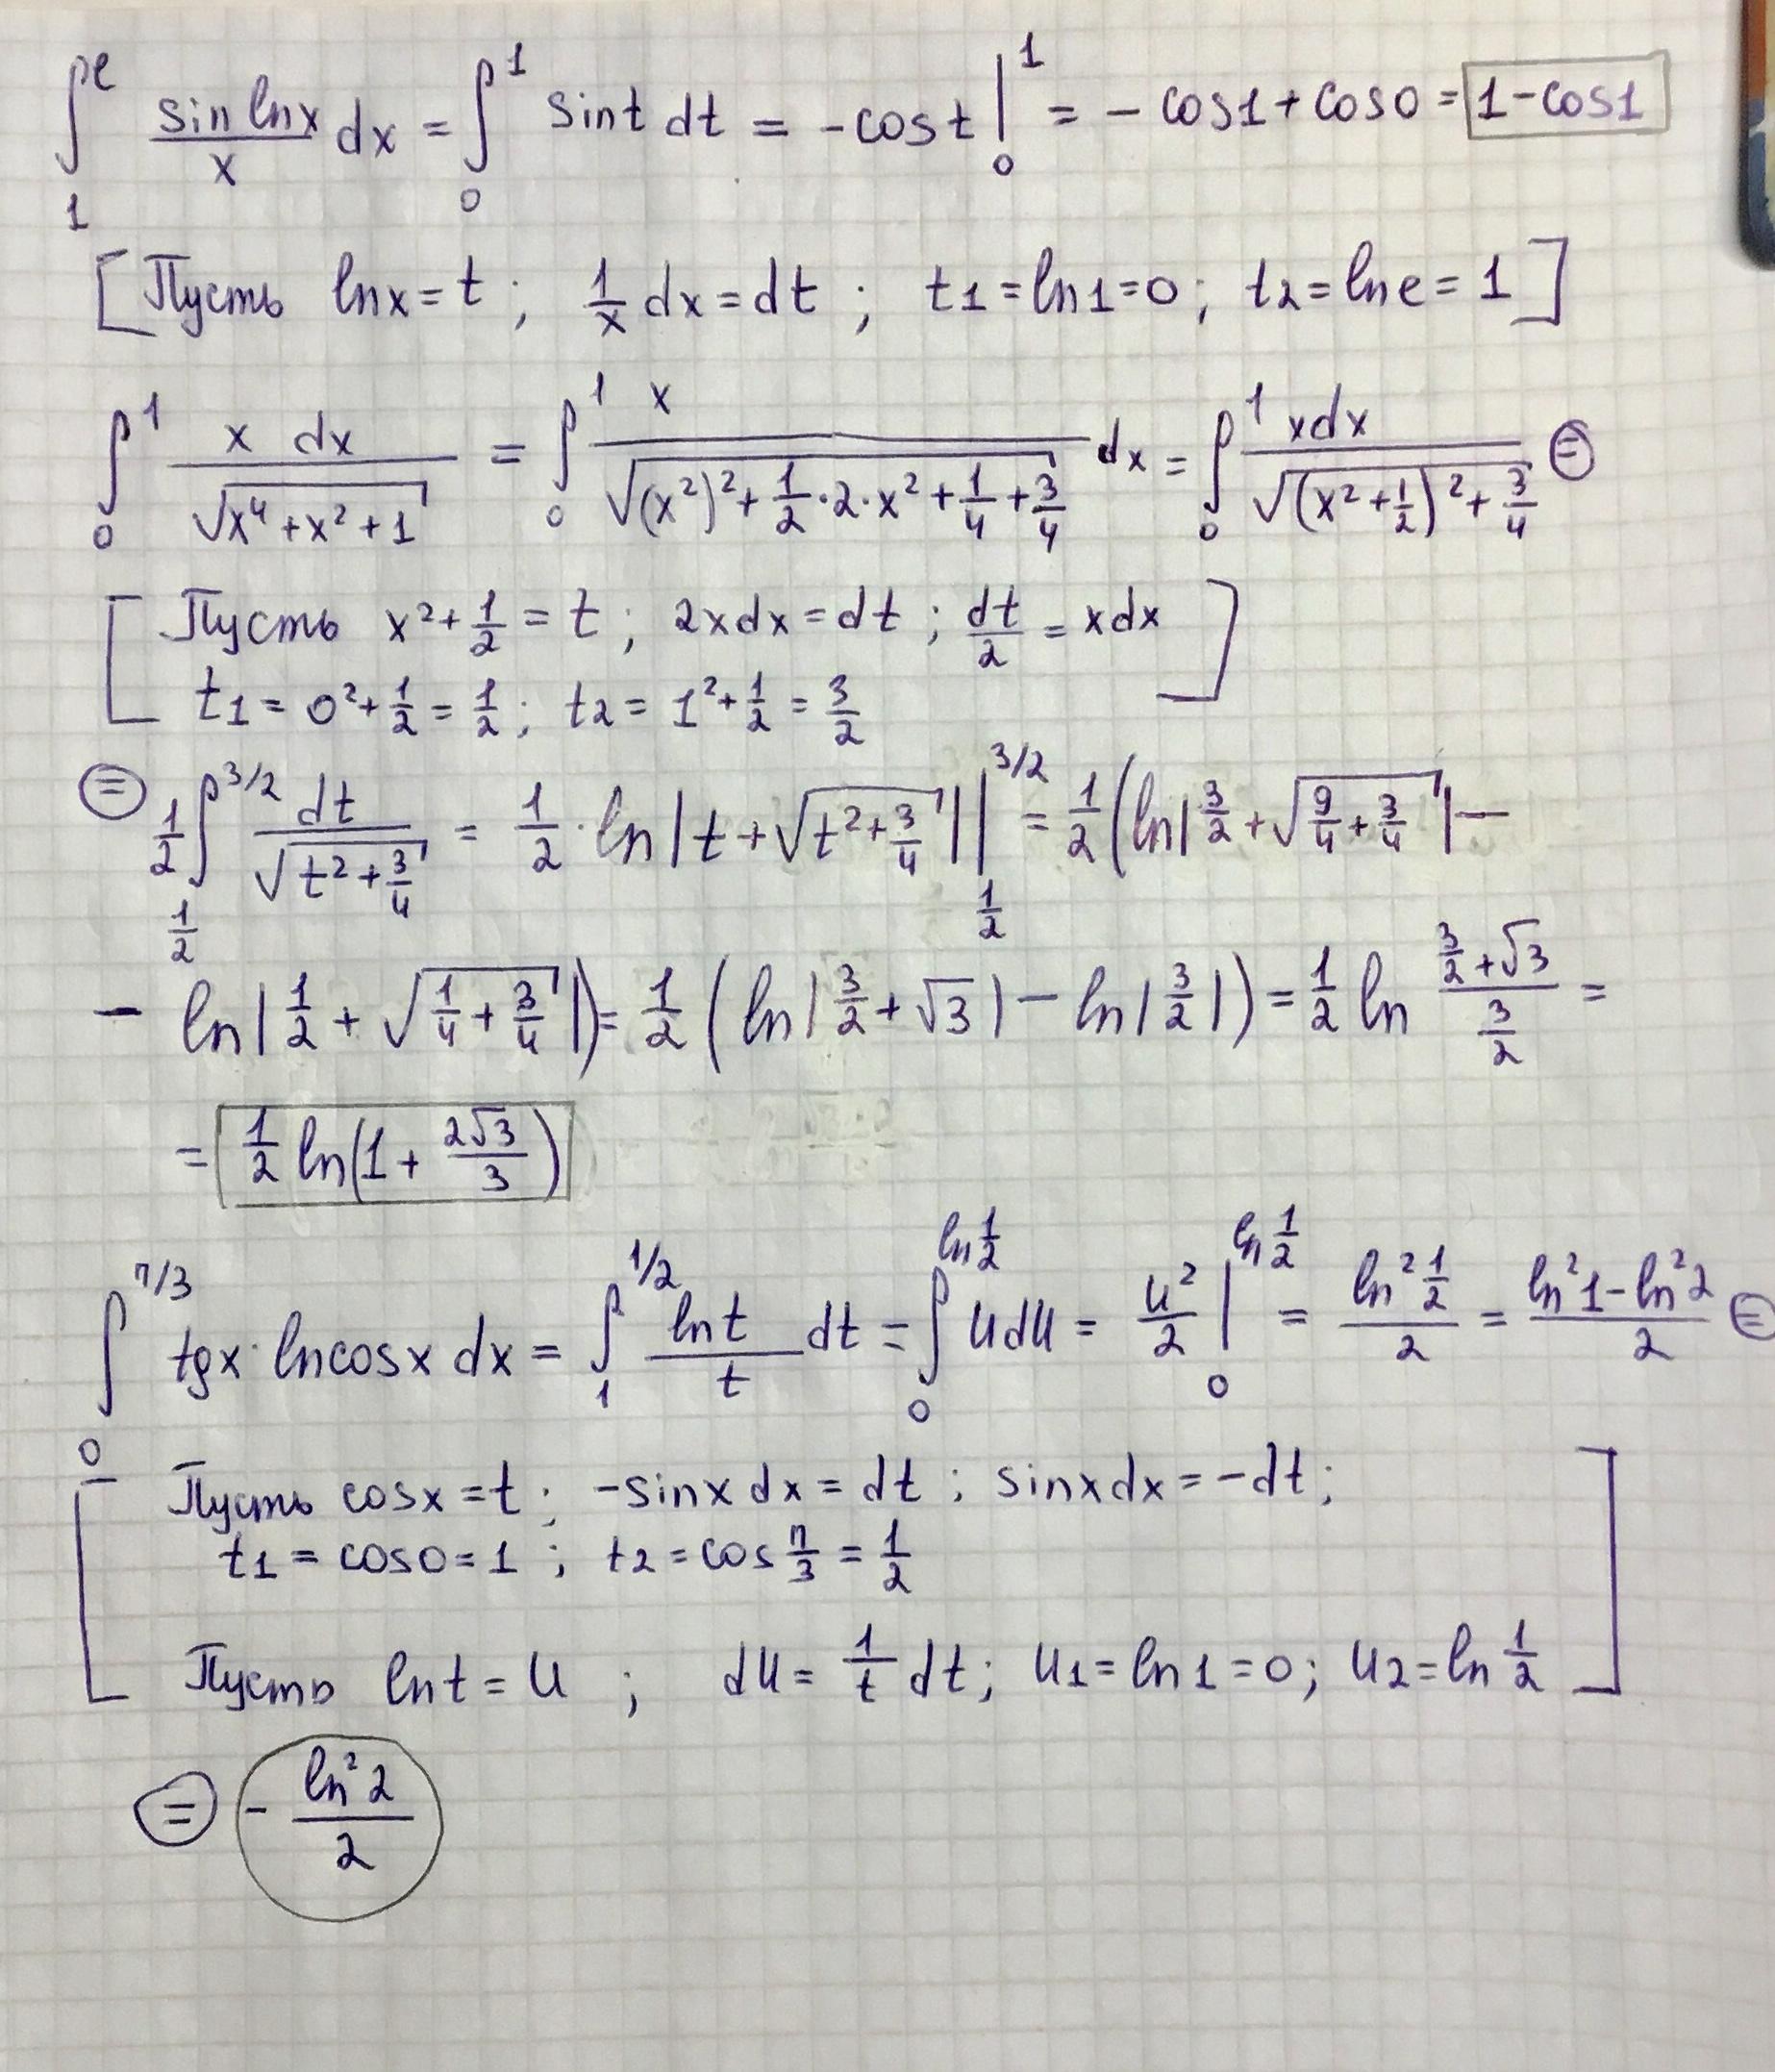 ∫₁ᵉ (sin lnx)/x dx = ∫₀¹ sint dt = -cost |₀¹ = - cos1 + cos0 = 1-cos1
[Пусть lnx=t; 1/x dx=dt; t1=ln1=0; t2=lne=1]
∫₀¹ x dx/√(x⁴+x²+1) = ∫₀¹ x/√((x²)²+1/2·2·x²+1/4+3/4) dx = ∫₀¹ xdx/√((x²+1/2)²+3/4) =
[Пусть x²+1/2=t; 2xdx=dt; dt/2=xdx]
t1=0²+1/2=1/2; t2=1²+1/2=3/2
= 1/2 ∫_{1/2}^{3/2} dt/√(t²+3/4) = 1/2·ln|t+√(t²+3/4)| |_{1/2}^{3/2} = 1/2(ln|3/2+√(9/4+3/4)| -
- ln|1/2+√(1/4+3/4)|) = 1/2(ln|3/2+√3|-ln|3/2|) = 1/2 ln (3/2+√3)/(3/2) =
= 1/2 ln(1+2√3/3)
∫₀^{π/3} tgx·lncosx dx = ∫₁^{1/2} lnt/t dt = ∫₀^{ln1/2} udu = u²/2 |₀^{ln1/2} = ln²1/2 / 2 = (ln²1-ln²2)/2 =
[Пусть cosx=t; -sinxdx=dt; sinxdx=-dt;
t1=cos0=1; t2=cosπ/3=1/2
Пусть lnt=u; du=1/t dt; u1=ln1=0; u2=ln1/2]
= -ln²2/2